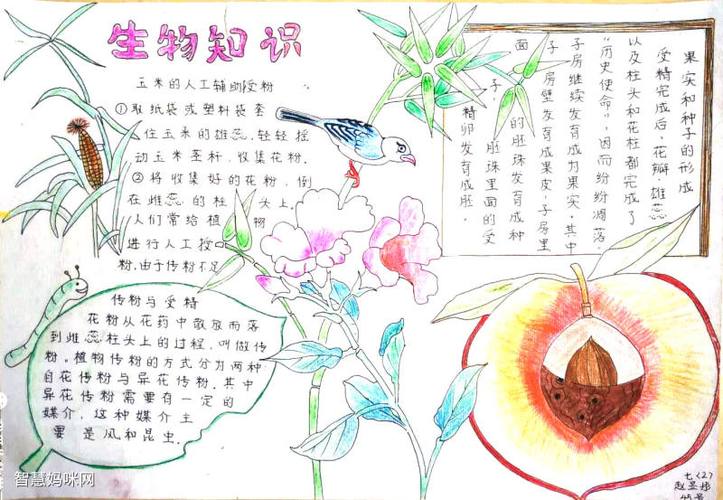 生物知识
玉米的人工辅助授粉
①取纸袋或塑料袋套
住玉米的雄蕊,轻轻摇
动玉米茎秆,收集花粉.
②将收集好的花粉,倒
在雌蕊的柱头上.
人们常给植物
进行人工授
粉.由于传粉不足
果实和种子的形成
受精完成后,花瓣、雄蕊
以及柱头和花柱都完成了
"历史使命",因而纷纷凋落.
子房继续发育成为果实.其中
子房壁发育成果皮,子房里
面的胚珠发育成种
子,胚珠里面的受
精卵发育成胚.
传粉与受精
花粉从花药中散放而落
到雌蕊柱头上的过程,叫做传
粉。植物传粉的方式分为两种
自花传粉与异花传粉.其中
异花传粉需要有一定的
媒介,这种媒介主
要是风和昆虫.
七〈2〉
智慧妈咪网